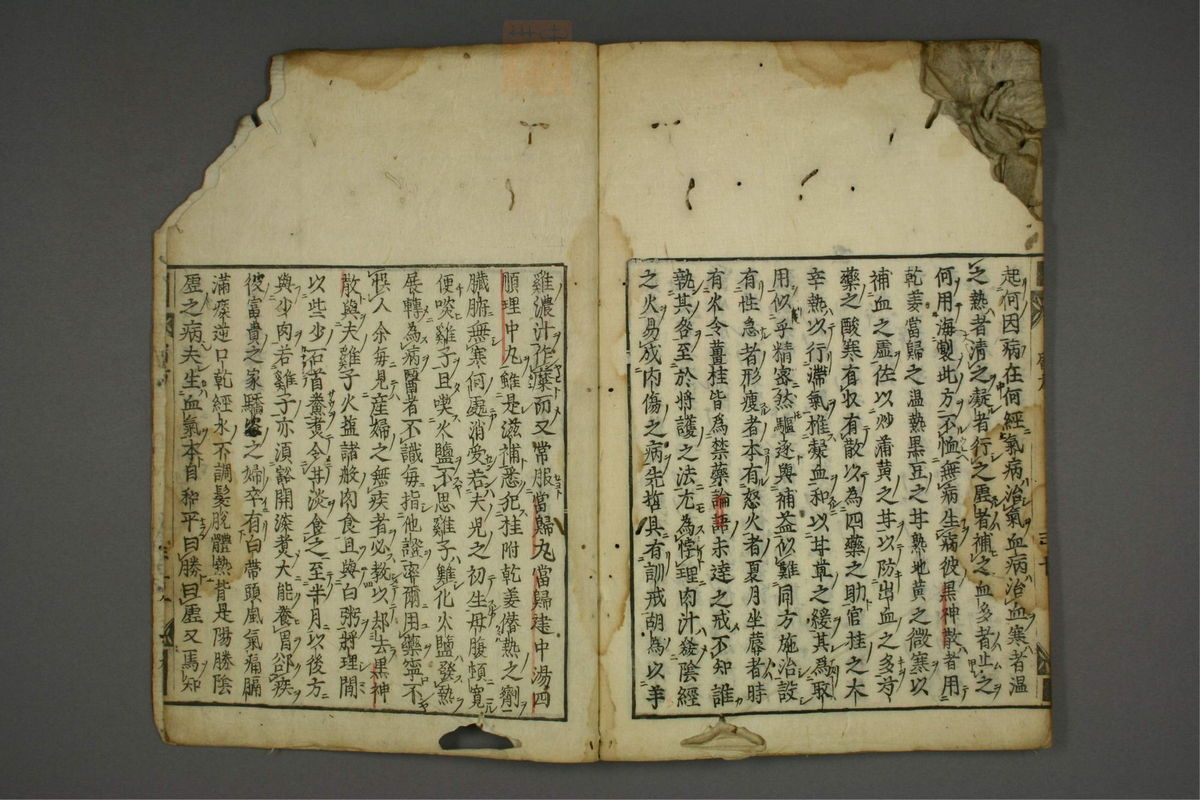 起何因病在何經氣病治氣血病治血寒者温
之熱者清之凝者行之虛者補之血多者止之
何用海製此方不恤無病生病彼黒神散者用
乾姜當歸之温熱黒豆之甘熟地黄之微寒以
補血之虛佐以炒蒲黄之甘以防出血之多芍
藥之酸寒有収有散以為四藥之助官桂之木
辛熱以行滯氣推凝血和以甘草之緩其為取
用似乎精密然驅逐與補益似難同方施治設
有性急者形瘦者本有怒火者夏月坐蓐者時
有火令薑桂皆為禁藥論語未達之戒不知誰
執其咎至於將護之法尤為悖理肉汁發陰經
之火易成内傷之病先哲具有訓戒胡為以羊
雞濃汁作藥而又常服當歸丸當歸建中湯四
順理中丸雖是滋補悉犯桂附乾姜僭熱之劑
臓腑無寒何處消受若夫児之初生母腹頓寛
便啖雞子且喫火鹽不思雞子難化火鹽發熱
展轉為病醫者不識毎指他證率爾用藥寧不
悞人余毎見産婦之無疾者必教以却去黒神
散與夫雞子火鹽諸般肉食且與白粥將理間
以些少石首鯗煑令甘淡食之至半月以後方
與少肉若雞子亦須豁開淡煑大能養胃却疾
彼富貴之家驕恣之婦卒有白帶頭風氣痛膈
滿痰逆口乾經水不調髪脱體熱皆是陽勝陰
虛之病夫生血氣本自和平曰勝曰虛又焉知